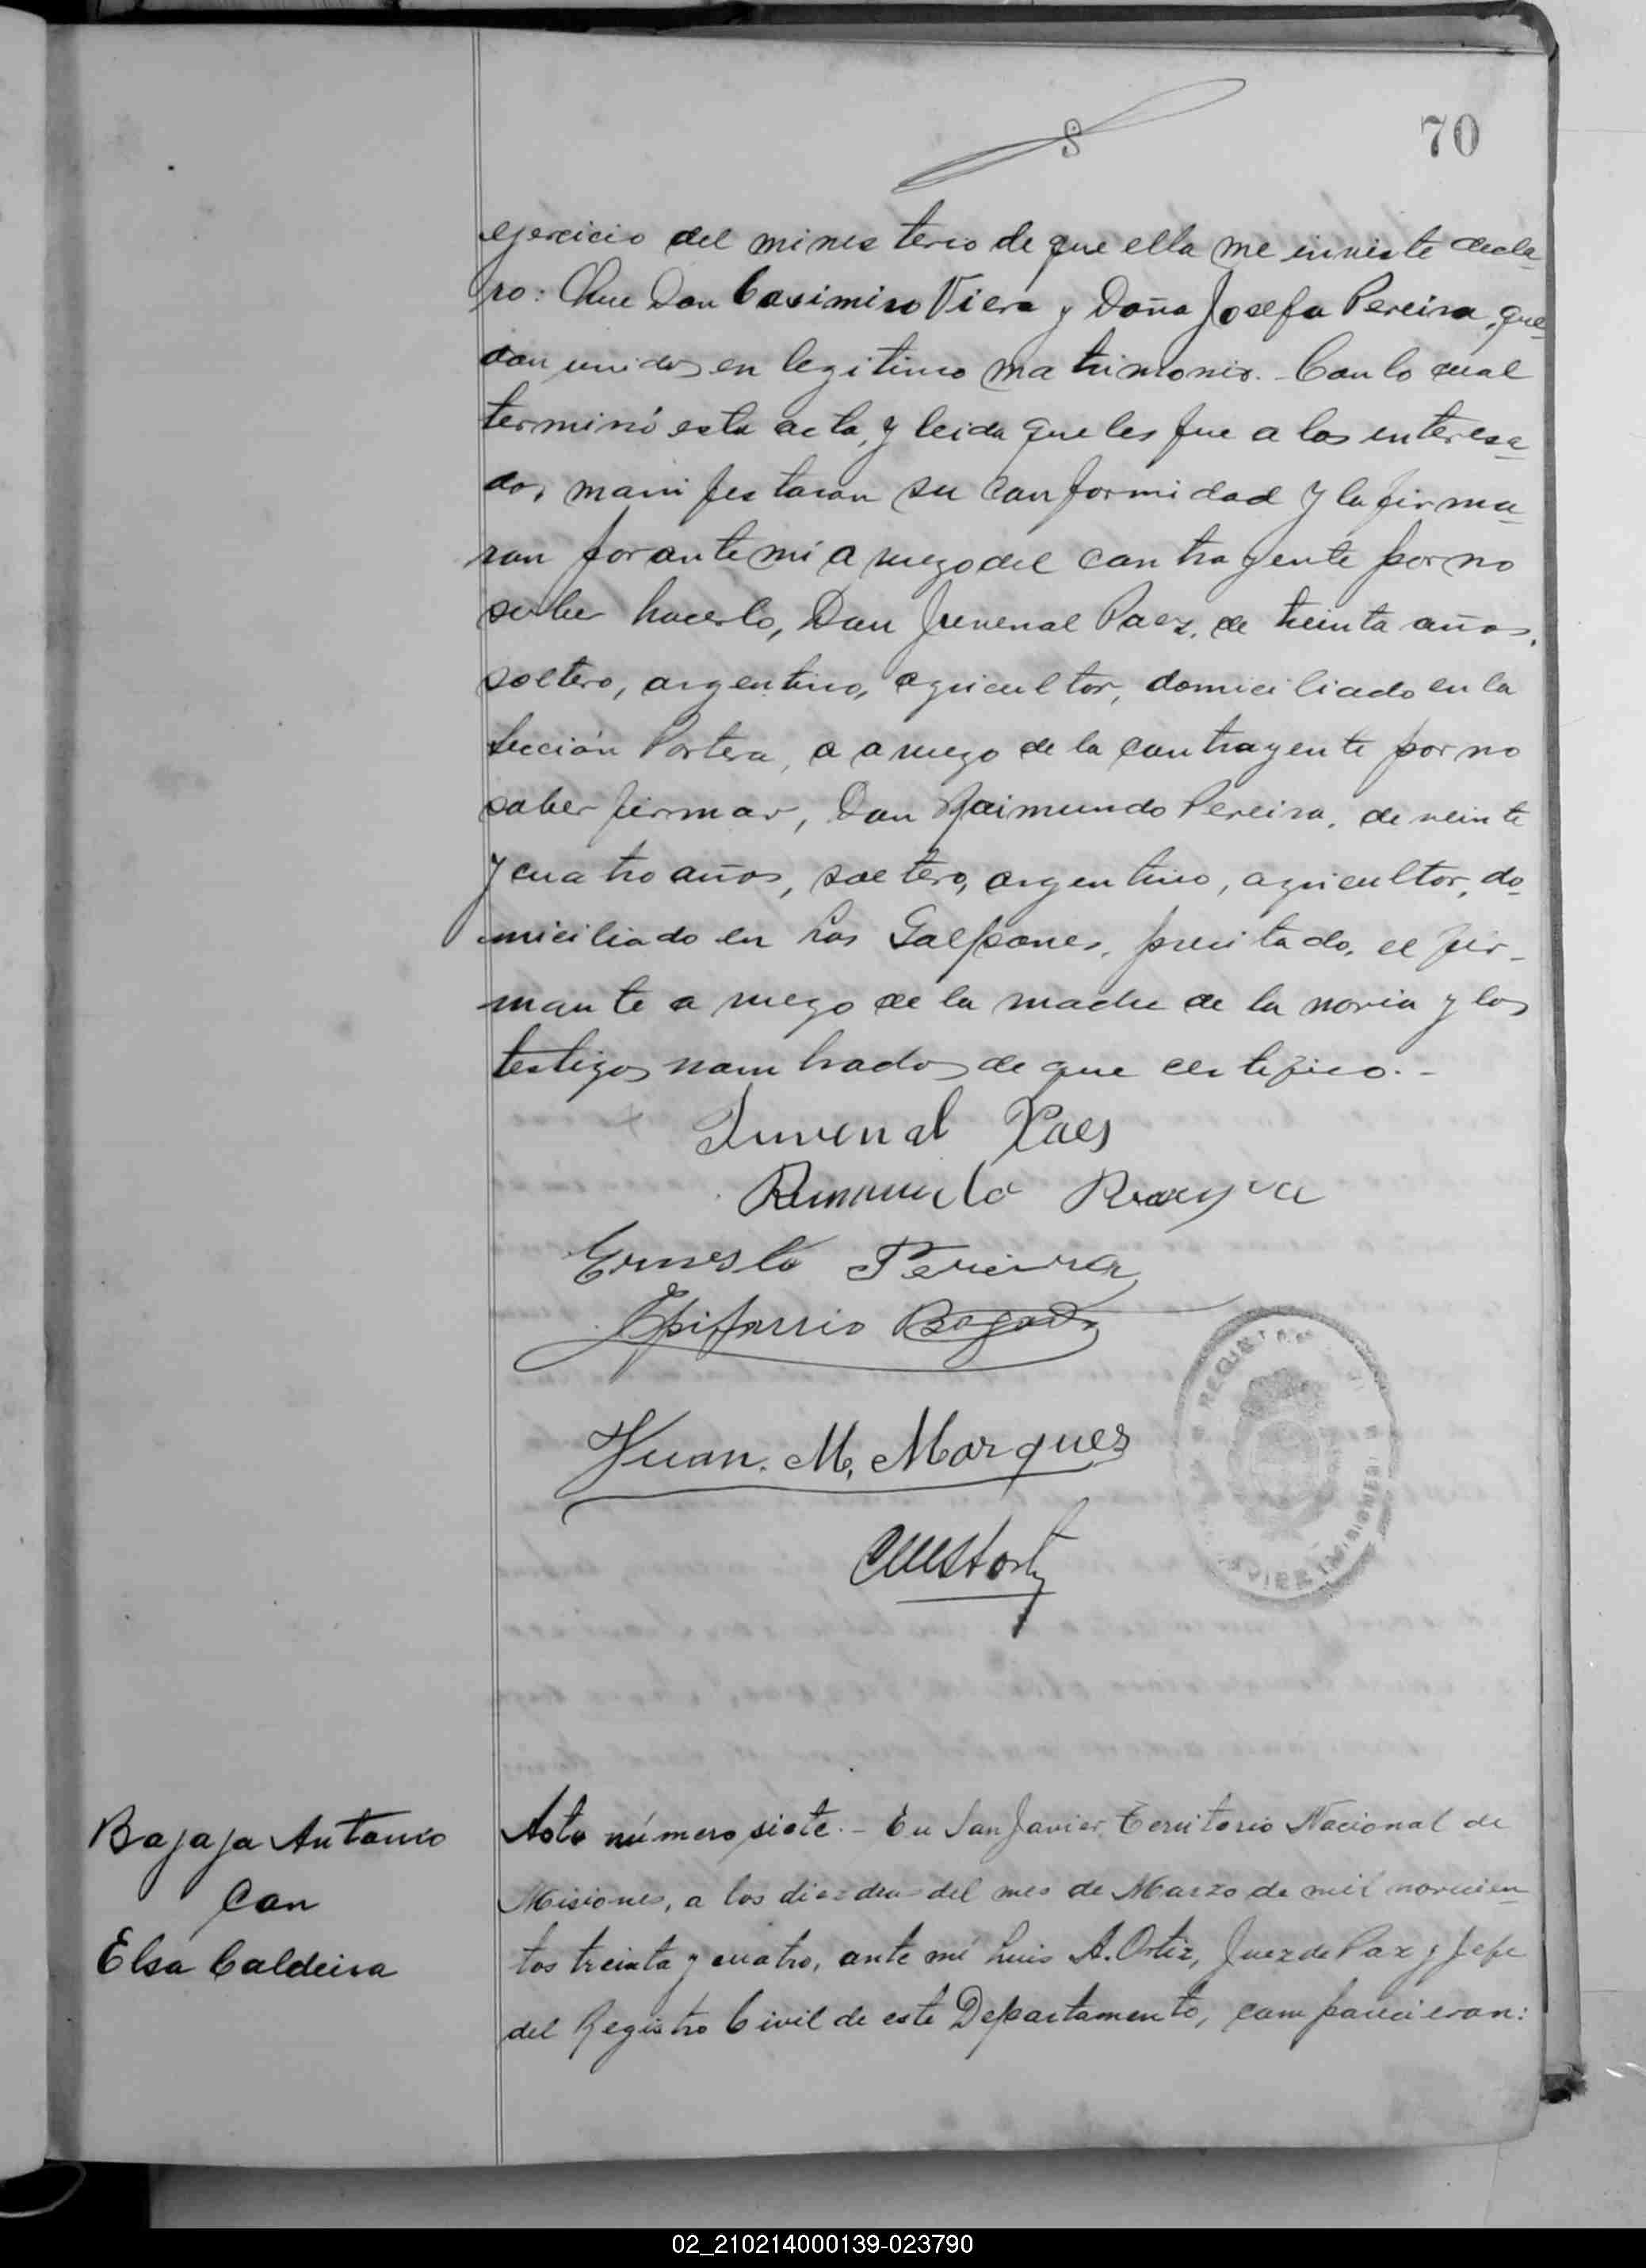 70
8
ejercicio del ministerio de que ella me inviste decla-
ro: Que Don Casimiro Viera y Doña Josefa Pereira, que-
dan unidos en legitimo matrimonio. - Con lo cual
terminó esta acta, y leida que les fue a los interesa-
dos, manifestaron su conformidad y la firma-
ron por ante mi a ruego del contrayente por no
saber hacerlo, Don Juvenal Paez, de treinta años,
soltero, argentino, agricultor, domiciliado en la
Sección Portera, a a ruego de la contrayente por no
saber firmar, Don Raimundo Pereira, de veinte
y cuatro años, soltero, argentino, agricultor, do-
miciliado en Los Galpones, precitado, el fir-
mante a ruego de la madre de la novia y los
testigos nombrados de que certifico. -
Juvenal Paes
Ernesto Pereira
Epifanio Bogado
Juan. M. Marques
REGIST
MISIONES
Bajaja Antonio
Con
Elsa Caldeira
Acta número siete. - En San Javier, Territorio Nacional de
Misiones, a los dies dias del mes de Marzo de mil novecien-
tos treinta y cuatro, ante mi Luis A. Ortiz, Juez de Paz y Jefe
del Registro Civil de este Departamento, comparecieron:
02_210214000139-023790